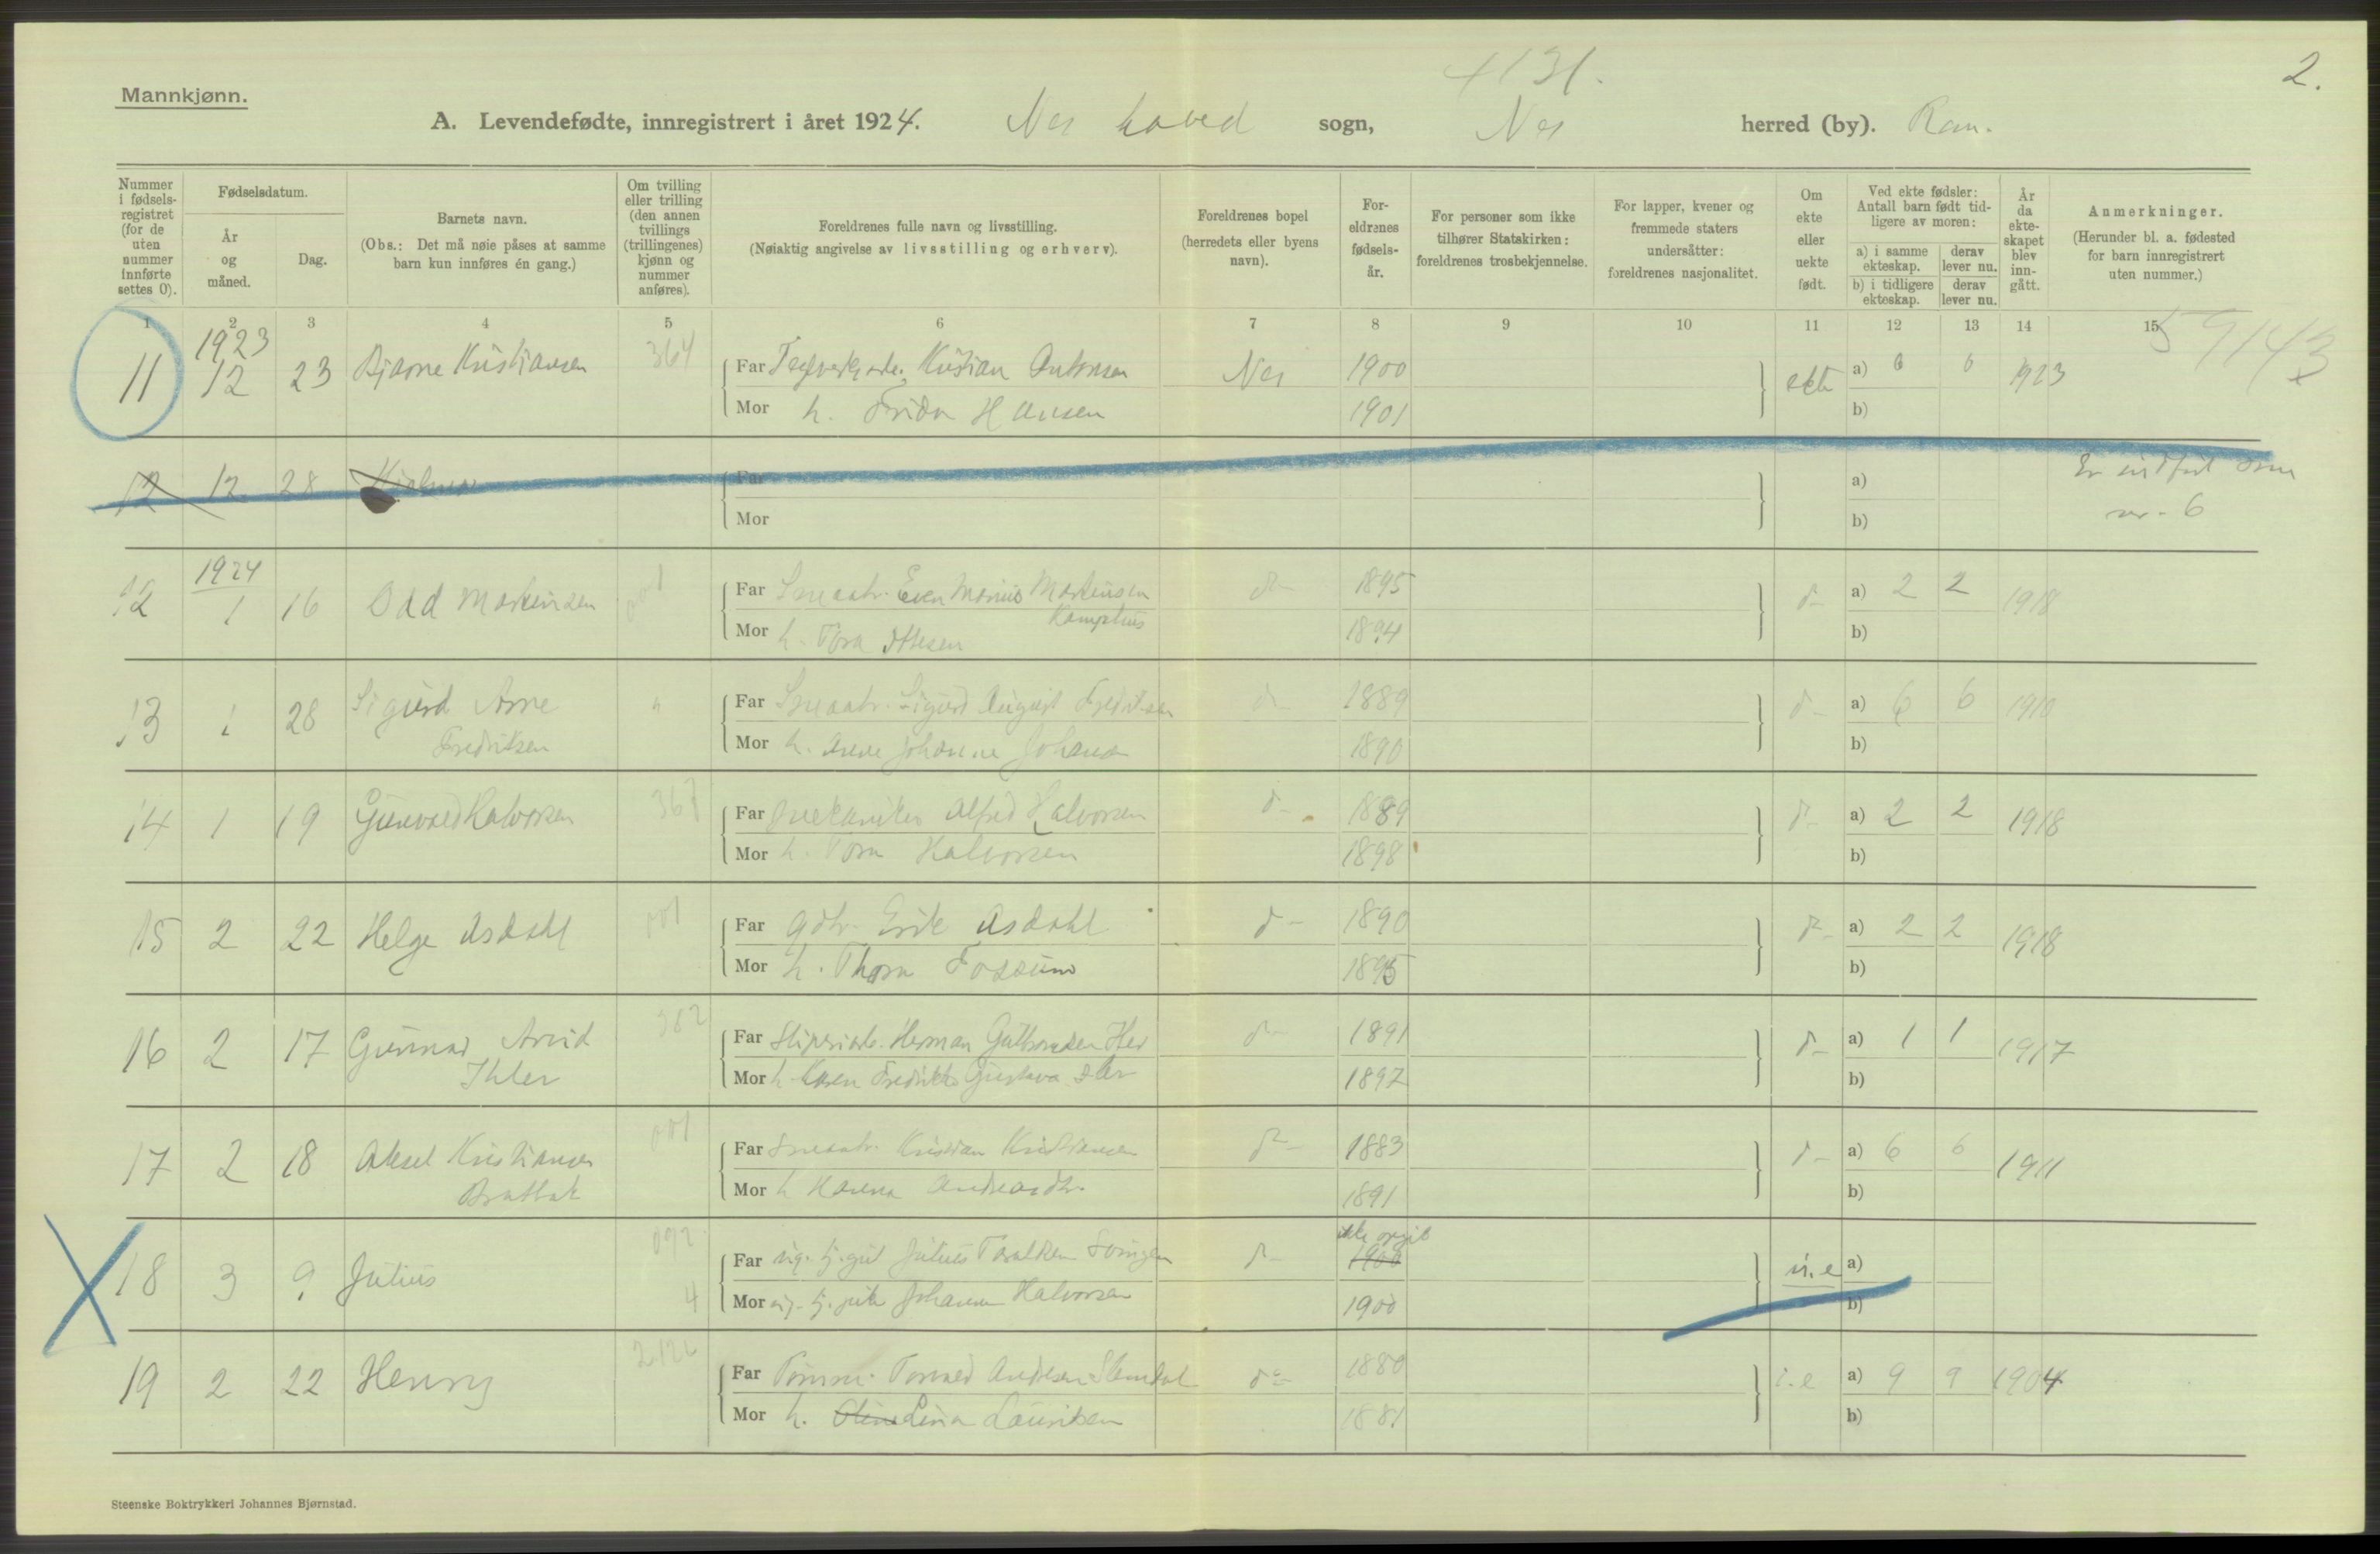 4131.
2.
Mannkjønn.
A. Levendefødte, innregistrert i året 1924. Nes hoved sogn, Nes herred (by). Rom.
Nummer i fødsels-registret (for de uten nummer innførte settes 0).
Fødselsdatum.
År og måned.
Dag.
Barnets navn.
(Obs.: Det må nøie påses at samme barn kun innføres én gang.)
Om tvilling eller trilling (den annen tvillings (trillingenes) kjønn og nummer anføres).
Foreldrenes fulle navn og livsstilling.
(Nøiaktig angivelse av livsstilling og erhverv).
Foreldrenes bopel (herredets eller byens navn).
For-eldrenes fødsels-år.
For personer som ikke tilhører Statskirken: foreldrenes trosbekjennelse.
For lapper, kvener og fremmede staters undersåtter: foreldrenes nasjonalitet.
Om ekte eller uekte født.
Ved ekte fødsler: Antall barn født tid-ligere av moren:
a) i samme ekteskap. derav lever nu.
b) i tidligere ekteskap. derav lever nu.
År da ekte-skapet blev inn-gått.
Anmerkninger.
(Herunder bl. a. fødested for barn innregistrert uten nummer.)
1 2 3 4 5 6 7 8 9 10 11 12 13 14 15
59143
1923
11 12 23 Bjarne Kristiansen 364 Far Teglverksarb. Kristian Antonsen Nes 1900 ekte a) 0 0 1923
Mor h. Frida Hansen 1901 b)
12 12 28 Hjalmar Far a) Er indført som
Mor b) nr. 6
1924
12 1 16 Odd Martinsen 001 Far Smaabr. Even Marius Martinsen d- 1895 d- a) 2 2 1918
Kamphus
Mor h. Tora Ottesen 1894 b)
13 1 28 Sigurd Arne Far Smaabr. Sigurd August Fredriksen d- 1889 d- a) 6 6 1910
Fredriksen Mor h. Anne Johanne 1890 b)
14 1 19 Gunvald Halvorsen 367 Far Mekaniker Alfred Halvorsen d- 1889 d- a) 2 2 1918
Mor h. Tora Halvorsen 1898 b)
15 2 22 Helge Asdahl 001 Far Gdbr. Erik Asdahl d- 1890 d- a) 2 2 1918
Mor h. Thora Fossum 1895 b)
16 2 17 Gunnar Arvid 382 Far Sliperiarb. Herman Gulbrandsen Ihler d- 1891 d- a) 1 1 1917
Ihler Mor h. Karen Fredrikke Gustava Ihler 1897 b)
17 2 18 Aksel Kristiansen 001 Far Smaabr. Kristian Kristiansen d- 1883 d- a) 6 6 1911
Brattak Mor h. Andreasdtr. 1891 b)
ikke opgit
18 3 9 Julius 092 Far ug. tj.gut Julius d- 1900 u.e a)
4 Mor ug. tj.pike Johanne Halvorsen 1900 b)
19 2 22 Henry Far Tømm. Torvald Andresen Stendal d- 1880 i.e a) 9 9 1904
Mor h. Oline Lina Lauritsen 1881 b)
Steenske Boktrykkeri Johannes Bjørnstad.